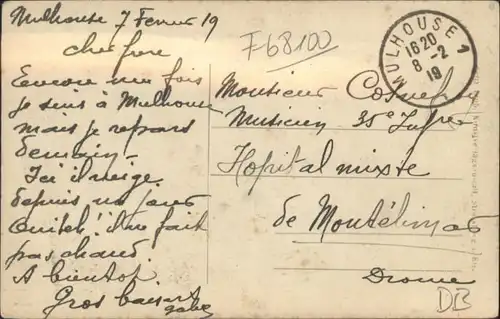 Mulhouse 7 Fevrier 19
cher frere
Encore une fois
je suis à Mulhouse
mais je repars
demain.
Ici il neige
depuis un jour
il ne fait
pas chaud.
A bientot.
Gros baisers
F68100
MULHOUSE 1
16 20
8 - 2
19
Monsieur
Musicien 35e Infrie
Hopital mixte
de Montélimar
Drome
DB